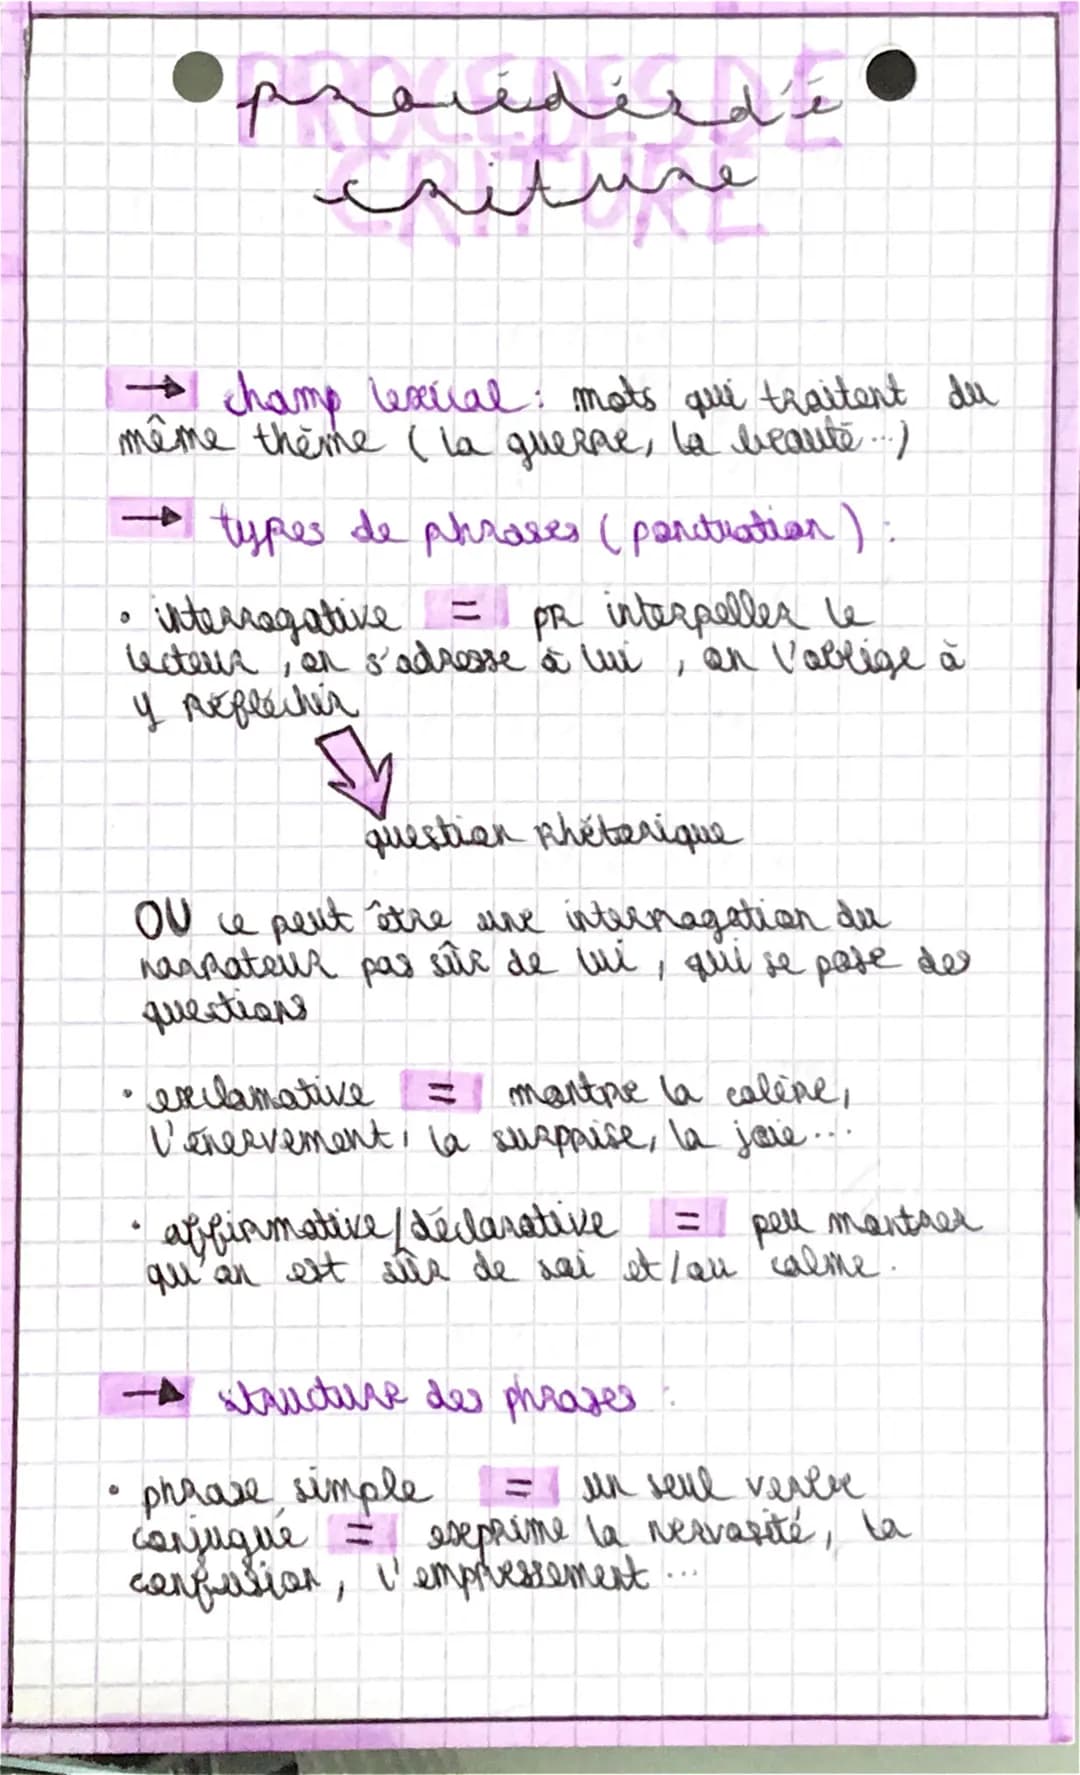 PROCEDES D'E
CRITURE
procédés d'é
criture
→ champ lexical : mots qui traitent du
même thème (la guerre, la beauté...)
→ types de phrases (ponctuation) :
• interrogative = pr interpeller le
lecteur, on s'adresse à lui, on l'oblige à
y réfléchir
question rhétorique
OU ce peut être une interrogation du
narrateur pas sûr de lui, qui se pose des
questions
• exclamative = montre la colère,
l'énervement, la surprise, la joie...
• affirmative/déclarative = peu montrer
qu'on est sûr de soi et/ou calme.
→ structure des phrases :
• phrase simple = un seul verbe
conjugué = exprime la nervosité, la
confusion, l'empressement...